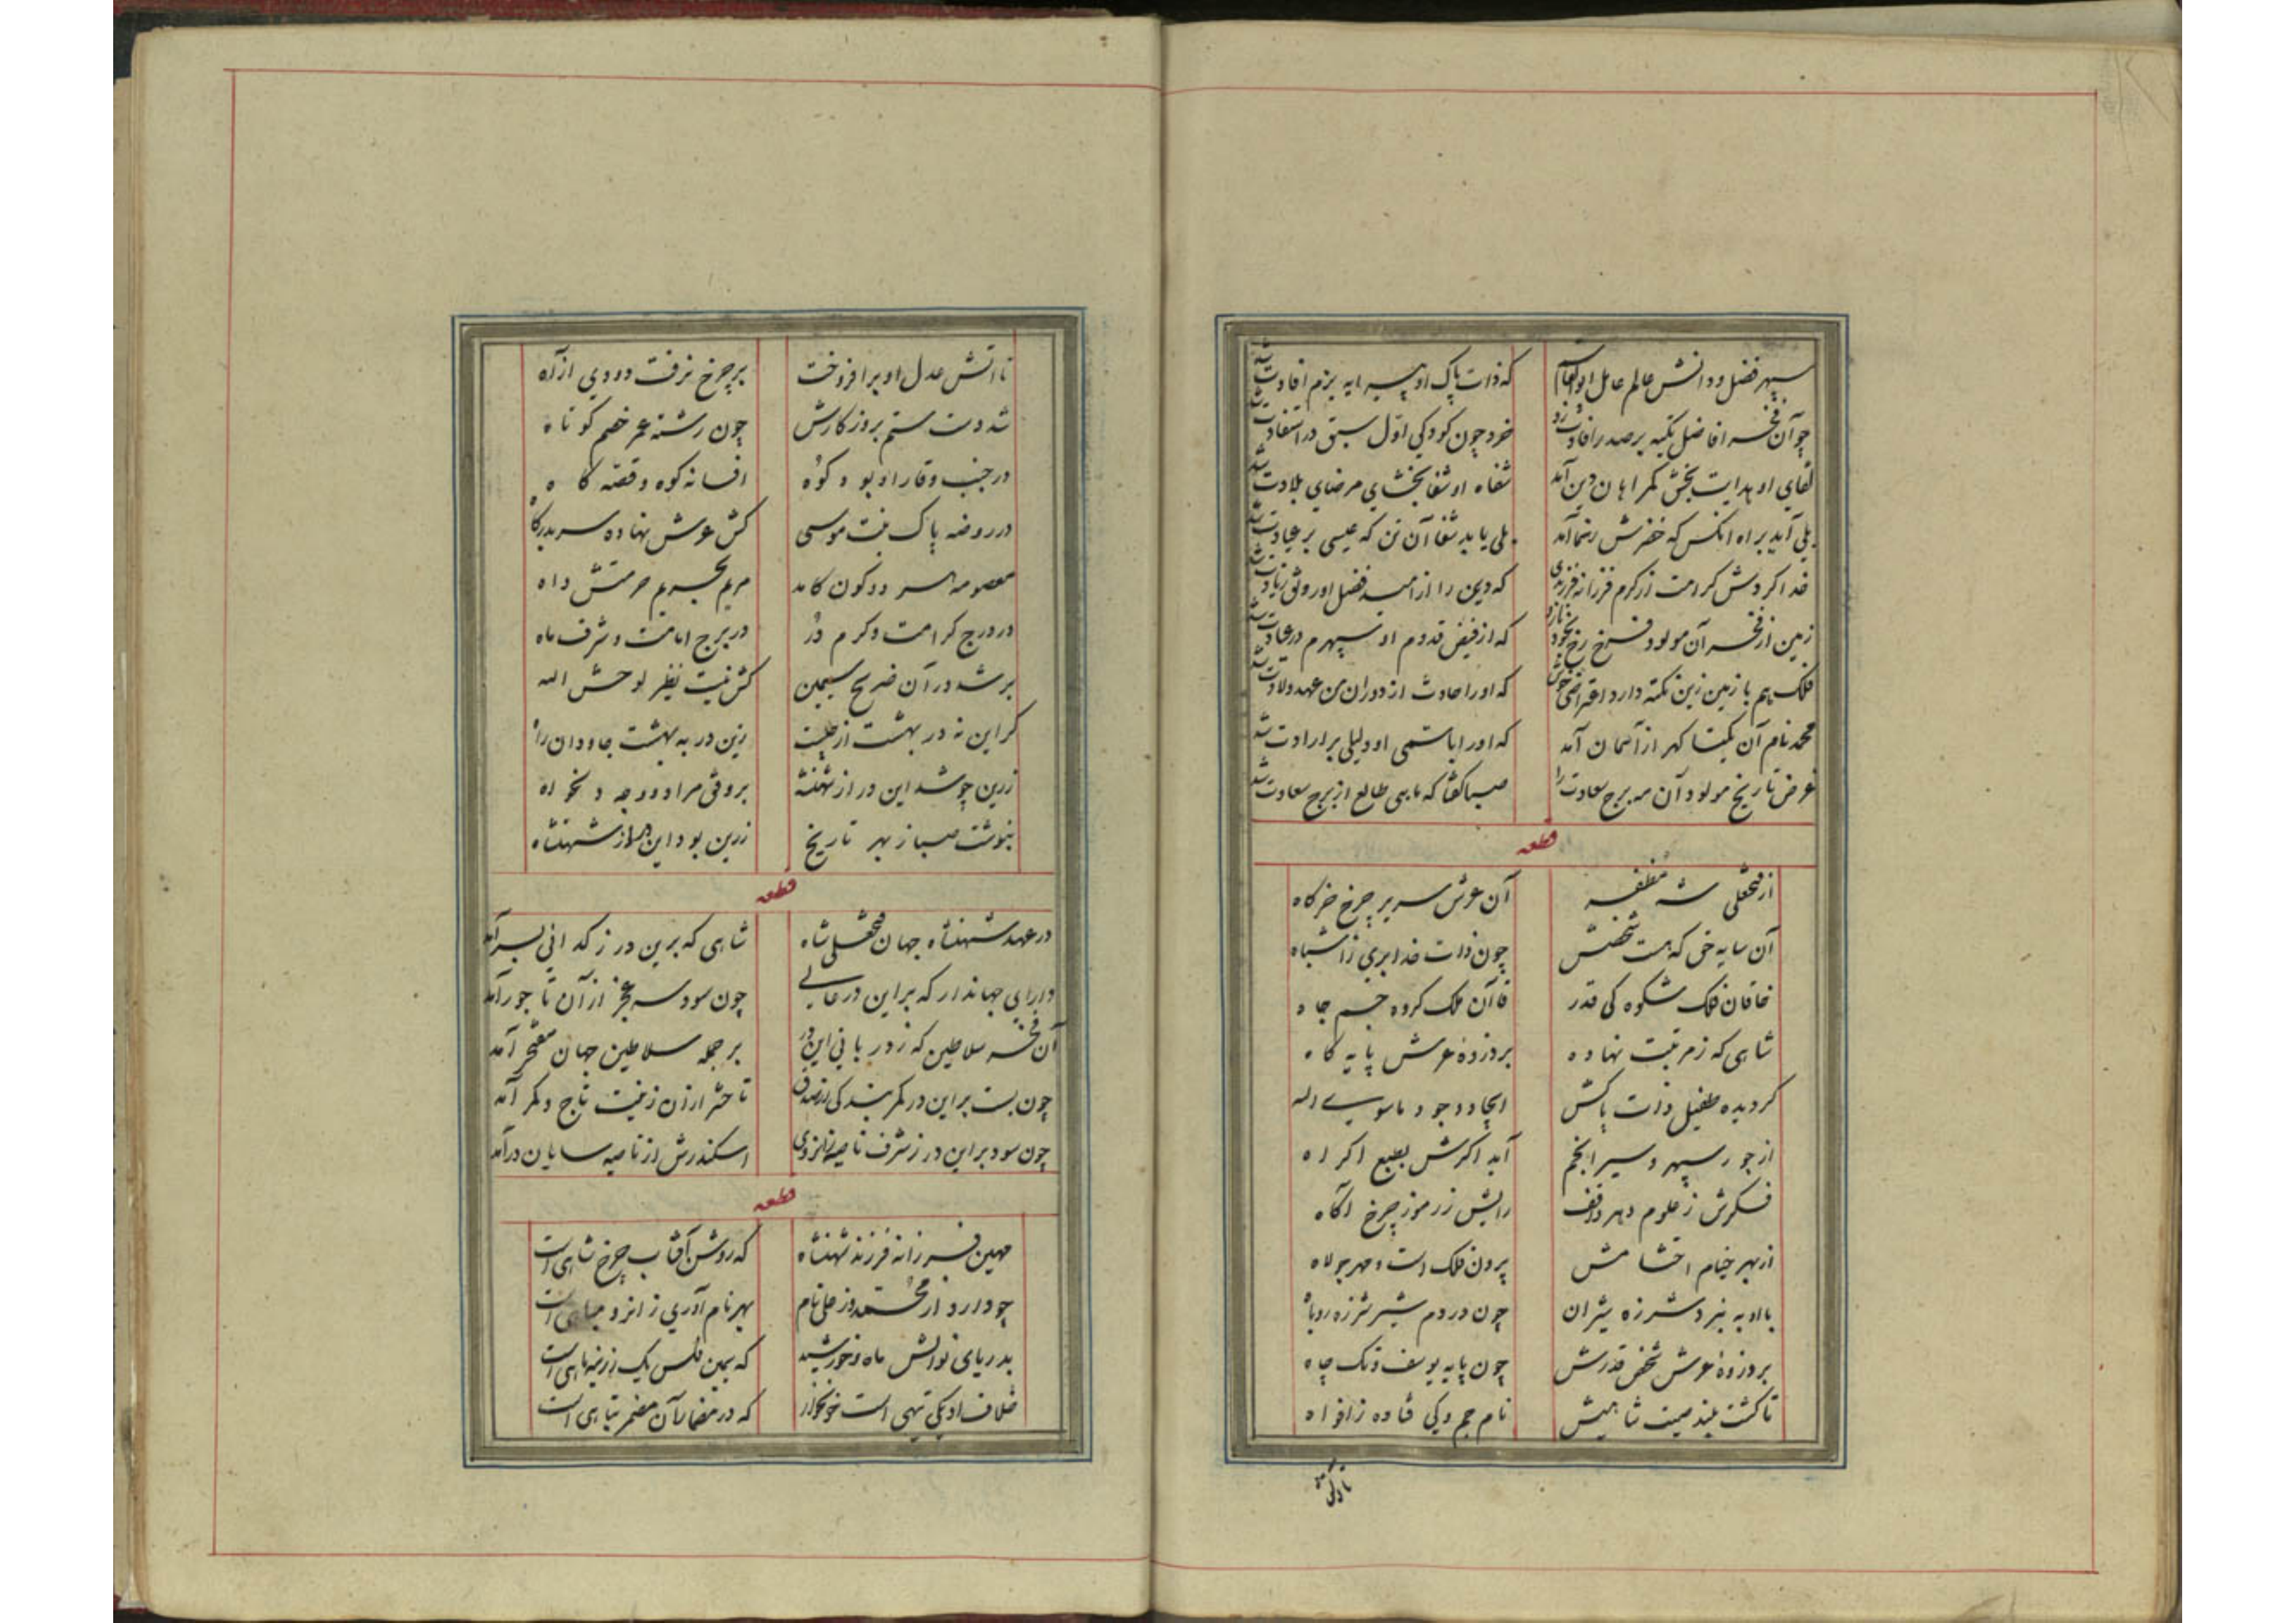 سپهر فضل و دانش عالم عامل ابوالقاسم که ذات پاک او پیرایه بزم افادت شد
چو آن فخر افاضل تکیه بر صدر افادت زد خرد چون کودکی اول سبق در استفادت شد
لقای او هدایت بخش کمراهان دین آمد شفاه او شفا بخشای مرضای بلادت شد
بلی آید براه انکس که خضرش رهنما آمد بلی یابد شفا آن تن که عیسی بر عیادت شد
خدا کردش کرامت از کرم فرزانه فرزندی که دین را از فضل او رونق زیادت شد
زمین از فخر آن مولود فرخ رخ بخود نازد که از فیض قدوم او سپهرم در عبادت شد
فلک هم با زمین زین نکته دارد اعتراضی خوش که او را حادث از دوران من عهد ولادت شد
محمد نام آن یکتا کهر از آسمان آمد که او را با سمی او دلیلی بر ارادت شد
غرض تاریخ مولود آن مه برج سعادت را صبا کفتا که ماهی طالع از برج سعادت شد
قطعه
از فتحعلی شه مظفر آن عرش سریر چرخ خرکاه
آن سایه حق که هست شخصش چون ذات خدا بری ز اشباه
خاقان فلک شکوه کی قدر قاآن ملک کروه جم جاه
شاهی که ز مرتبت نهاده بر ذروه عرش پایه کاه
کردیده طفیل ذات پاکش ایجاد وجود ماسوی الله
از جور سپهر و سیر انجم آید اکرش بطبع اکراه
فکرش ز علوم دهر واقف رایش ز رموز چرخ آکاه
از بهر خیام احتشامش پرون فلک است و مهر جولاه
با او به نبرد شرزه شیران چون در دم شیر شرزه روباه
بر ذروه عرش شخص قدرش چون پایه یوسف و تک چاه
تا کشت بلند صیت شاهیش نام جم و کی فتاده ز افواه
تا آتش عدل او برافروخت بر چرخ نرفت دودی از آه
شد دست ستم بروزکارش چون رشته عمر خصم کوتاه
در جنب وقار او بود کوه افسانه کوه و قصه کاه
در روضه پاک بنت موسی کش عرش نهاده سر بدرکاه
معصومه در دو کون کامد مریم بحریم حرمتش داه
در درج کرامت و کرم در در برج امامت و شرف ماه
بر شد در آن ضریح سیمین کش نیست نظیر لوحش الله
کر این نه در بهشت از چیست زین در به بهشت جاودان راه
زرین چو شد این در از شهنشه بر وفق مراد و وجه دلخواه
بنوشت صبا ز بهر تاریخ زرین بود این در از شهنشاه
قطعه
در عهد شهنشاه جهان فتحعلی شاه شاهی که برین در ز کدائی بسر آمد
دارای جهاندار که بر این در عالی چون سود سر عجز از آن تاجور آمد
آن فخر سلاطین که ز دربانی این در بر جمله سلاطین جهان مفتخر آمد
چون بست بر این در کمر بندکی از صدق تا حشر ازان زینت تاج و کمر آمد
چون سود بر این در ز شرف ناصیه زانروی اسکندرش از ناصیه سایان در آمد
قطعه
مهین فرزانه فرزند شهنشاه که روشن آفتاب چرخ شاهی است
چو دارد از محمد وز علی نام بهر نام آوری ز ایزد مباهی است
بدریای نوالش ماه و خورشید که سیمین فلس یک زرینه ماهی است
خلاف او یکی تیهی است خونخوار که در مضمار آن مضمر تباهی است